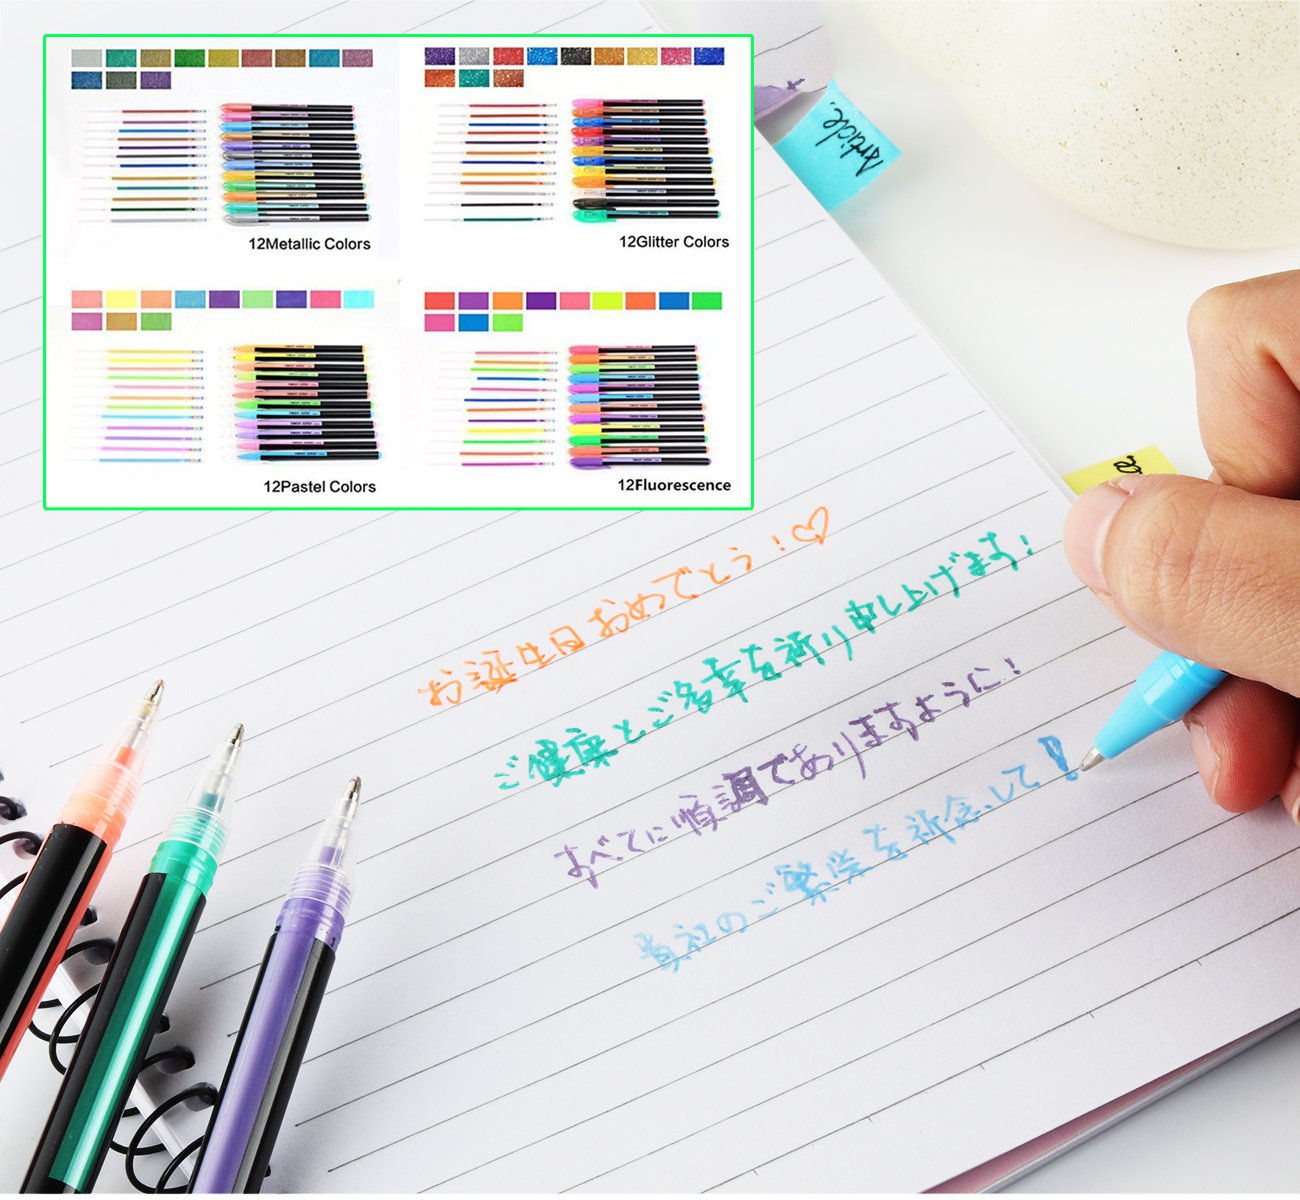 12Metallic Colors
12Glitter Colors
12Pastel Colors
12Fluorescence
Article.
お誕生日おめでとう!♡
ご健康とご多幸を祈り申し上げます!
すべてに順調でありますように!
貴社のご繁栄を祈念して!